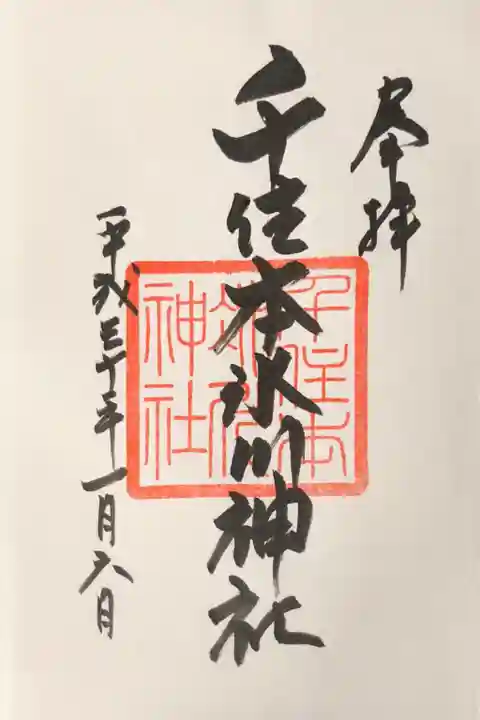 奉拝
千住本氷川神社
千住本
氷川
神社
平成三十年一月六日